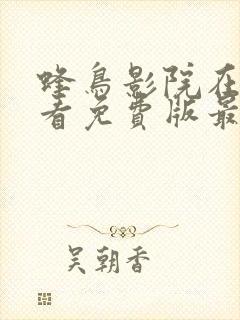 蜂鸟影院在
看免费版最
吴朝香